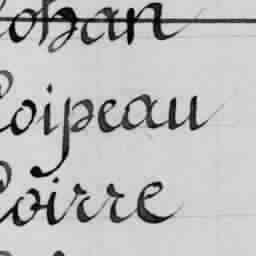 Cohan
Coipeau
Coirre